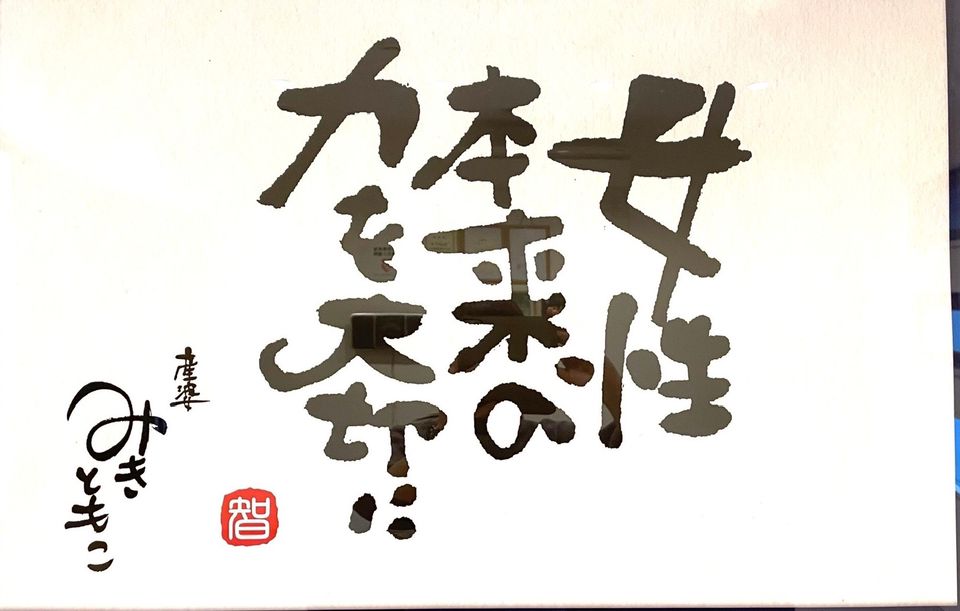 女性
本来の
力を大切に
産婆
みき
ともこ
智